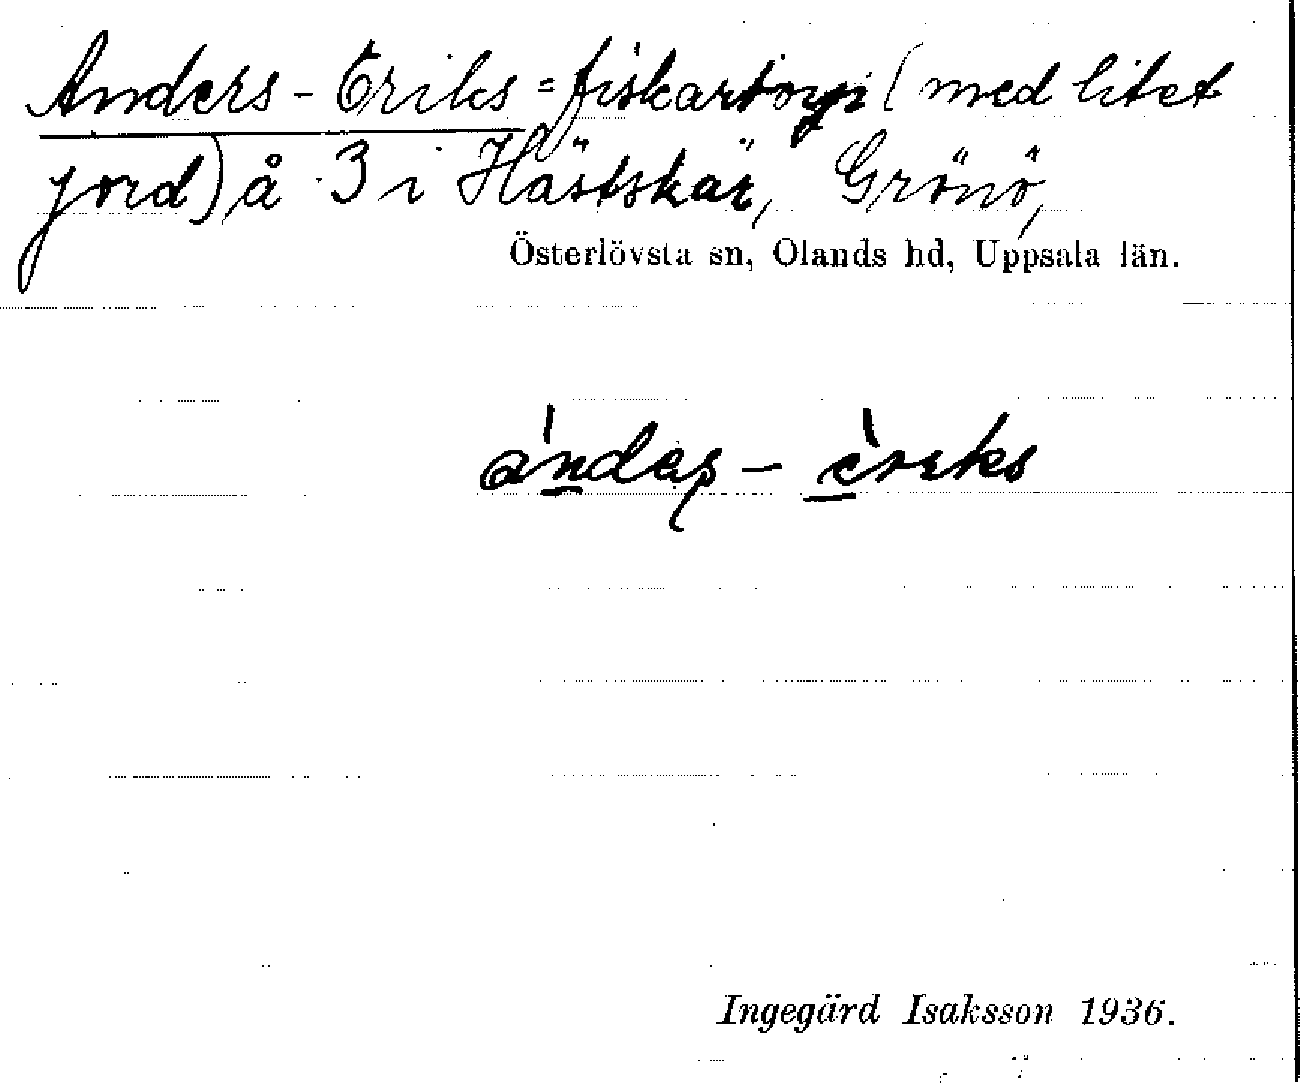 Anders-Eriks = fiskartorp (med litet
jord) å 3 i Hästskär, Grönö,
Österlövsta sn, Olands hd, Uppsala län.
ándaʂ - èreks
Ingegärd Isaksson 1936.